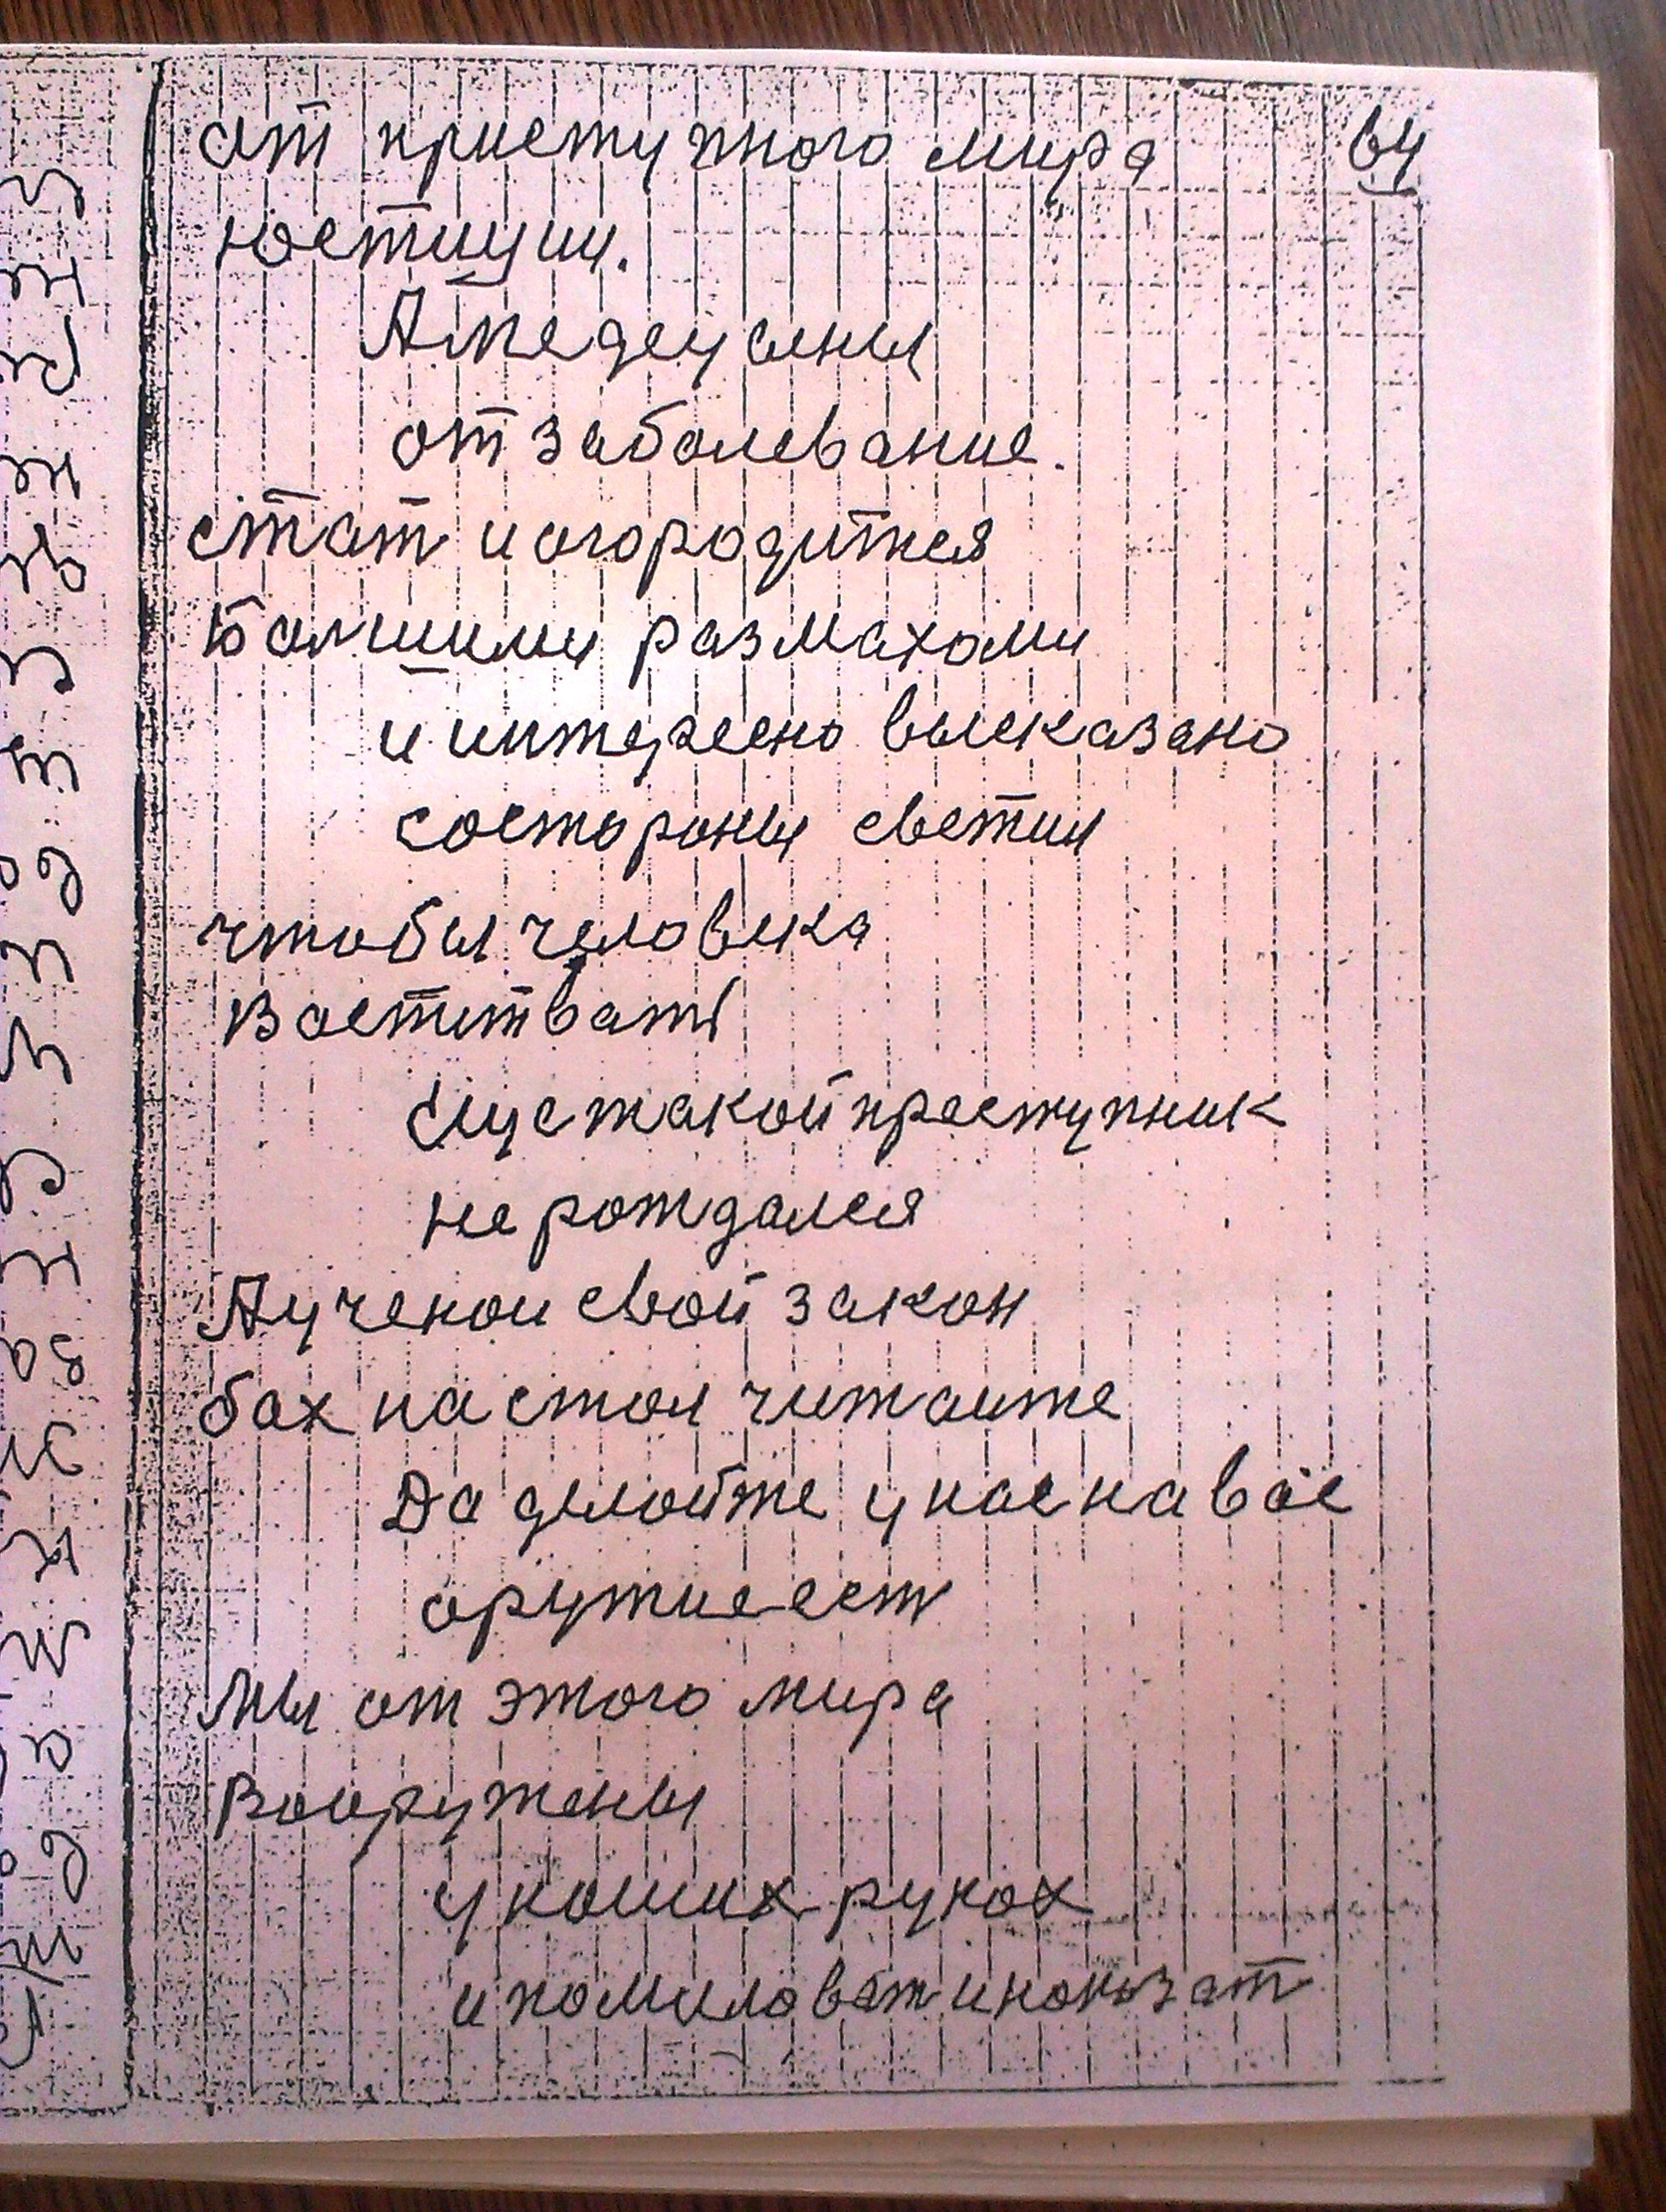 от приступного мира 64
юстиции.
А медецыны
от заболевание.
стат и огородится
Болшими размахоми
и интересно высказано
состороны светил
чтобы человека
Воститвать
Шустакой преступник
не рождался
А ученои свой закон
бах на стол читаите
Да делойте у нас на вас
оружие ест
Мы от этого мира
Вооружены
у ноших руках
и помиловат и покозат